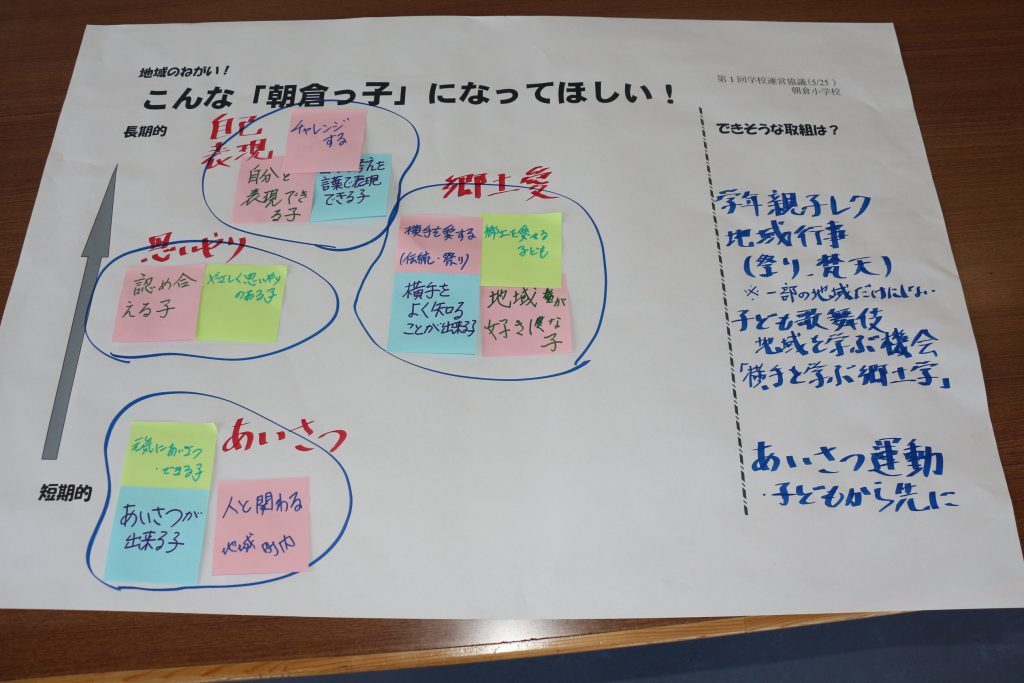 地域のねがい！
こんな「朝倉っ子」になってほしい！
第１回学校運営協議(5/25)
朝倉小学校
長期的
短期的
自己
表現
チャレンジ
する
自分と
表現でき
る子
考えを
言葉で表現
できる子
郷土愛
横手を愛する
(伝統・祭り)
郷土を愛せる
子ども
横手を
よく知る
ことが出来る子
地域
好き
な
子
思いやり
認め合
える子
やさしく思いやり
のある子
あいさつ
元気にあいさつ
できる子
あいさつが
出来る子
人と関わる
地域 町内
できそうな取組は？
学年親子レク
地域行事
(祭り、梵天)
※一部の地域だけにしない..
子ども歌舞伎
地域を学ぶ機会
「横手を学ぶ郷土学」
あいさつ運動
・子どもから先に